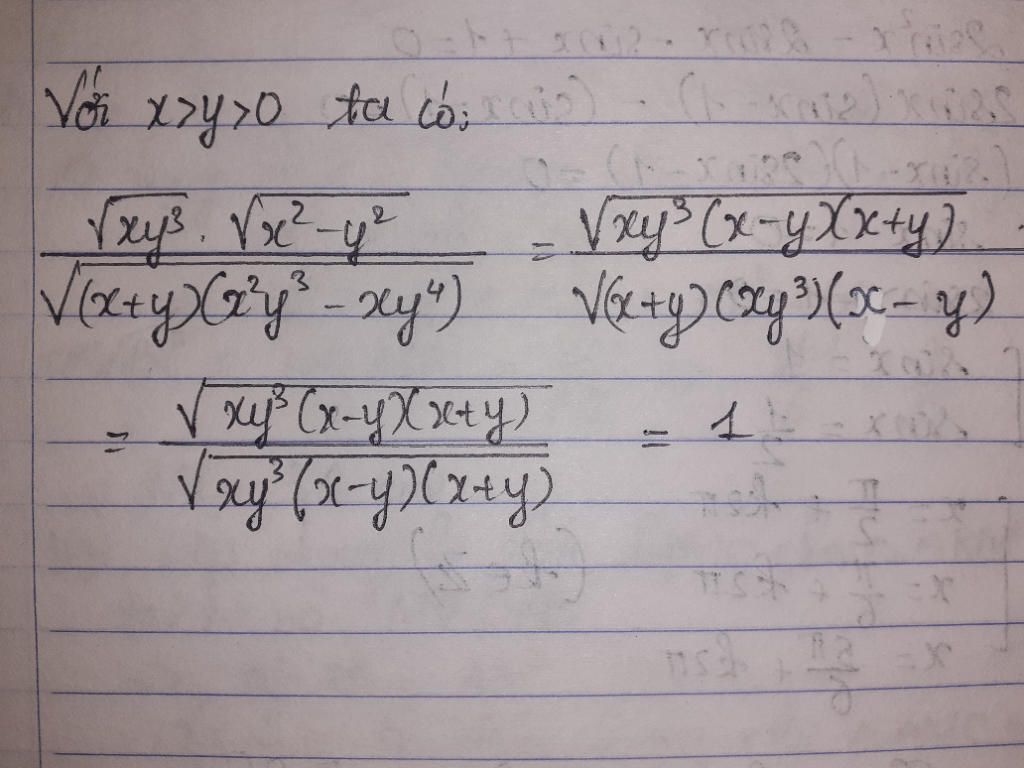 Với x>y>0 ta có:
√(xy³) . √(x²-y²) / √((x+y)(x²y³ - xy⁴)) = √(xy³(x-y)(x+y)) / √((x+y)(xy³)(x-y))
= √(xy³(x-y)(x+y)) / √(xy³(x-y)(x+y)) = 1